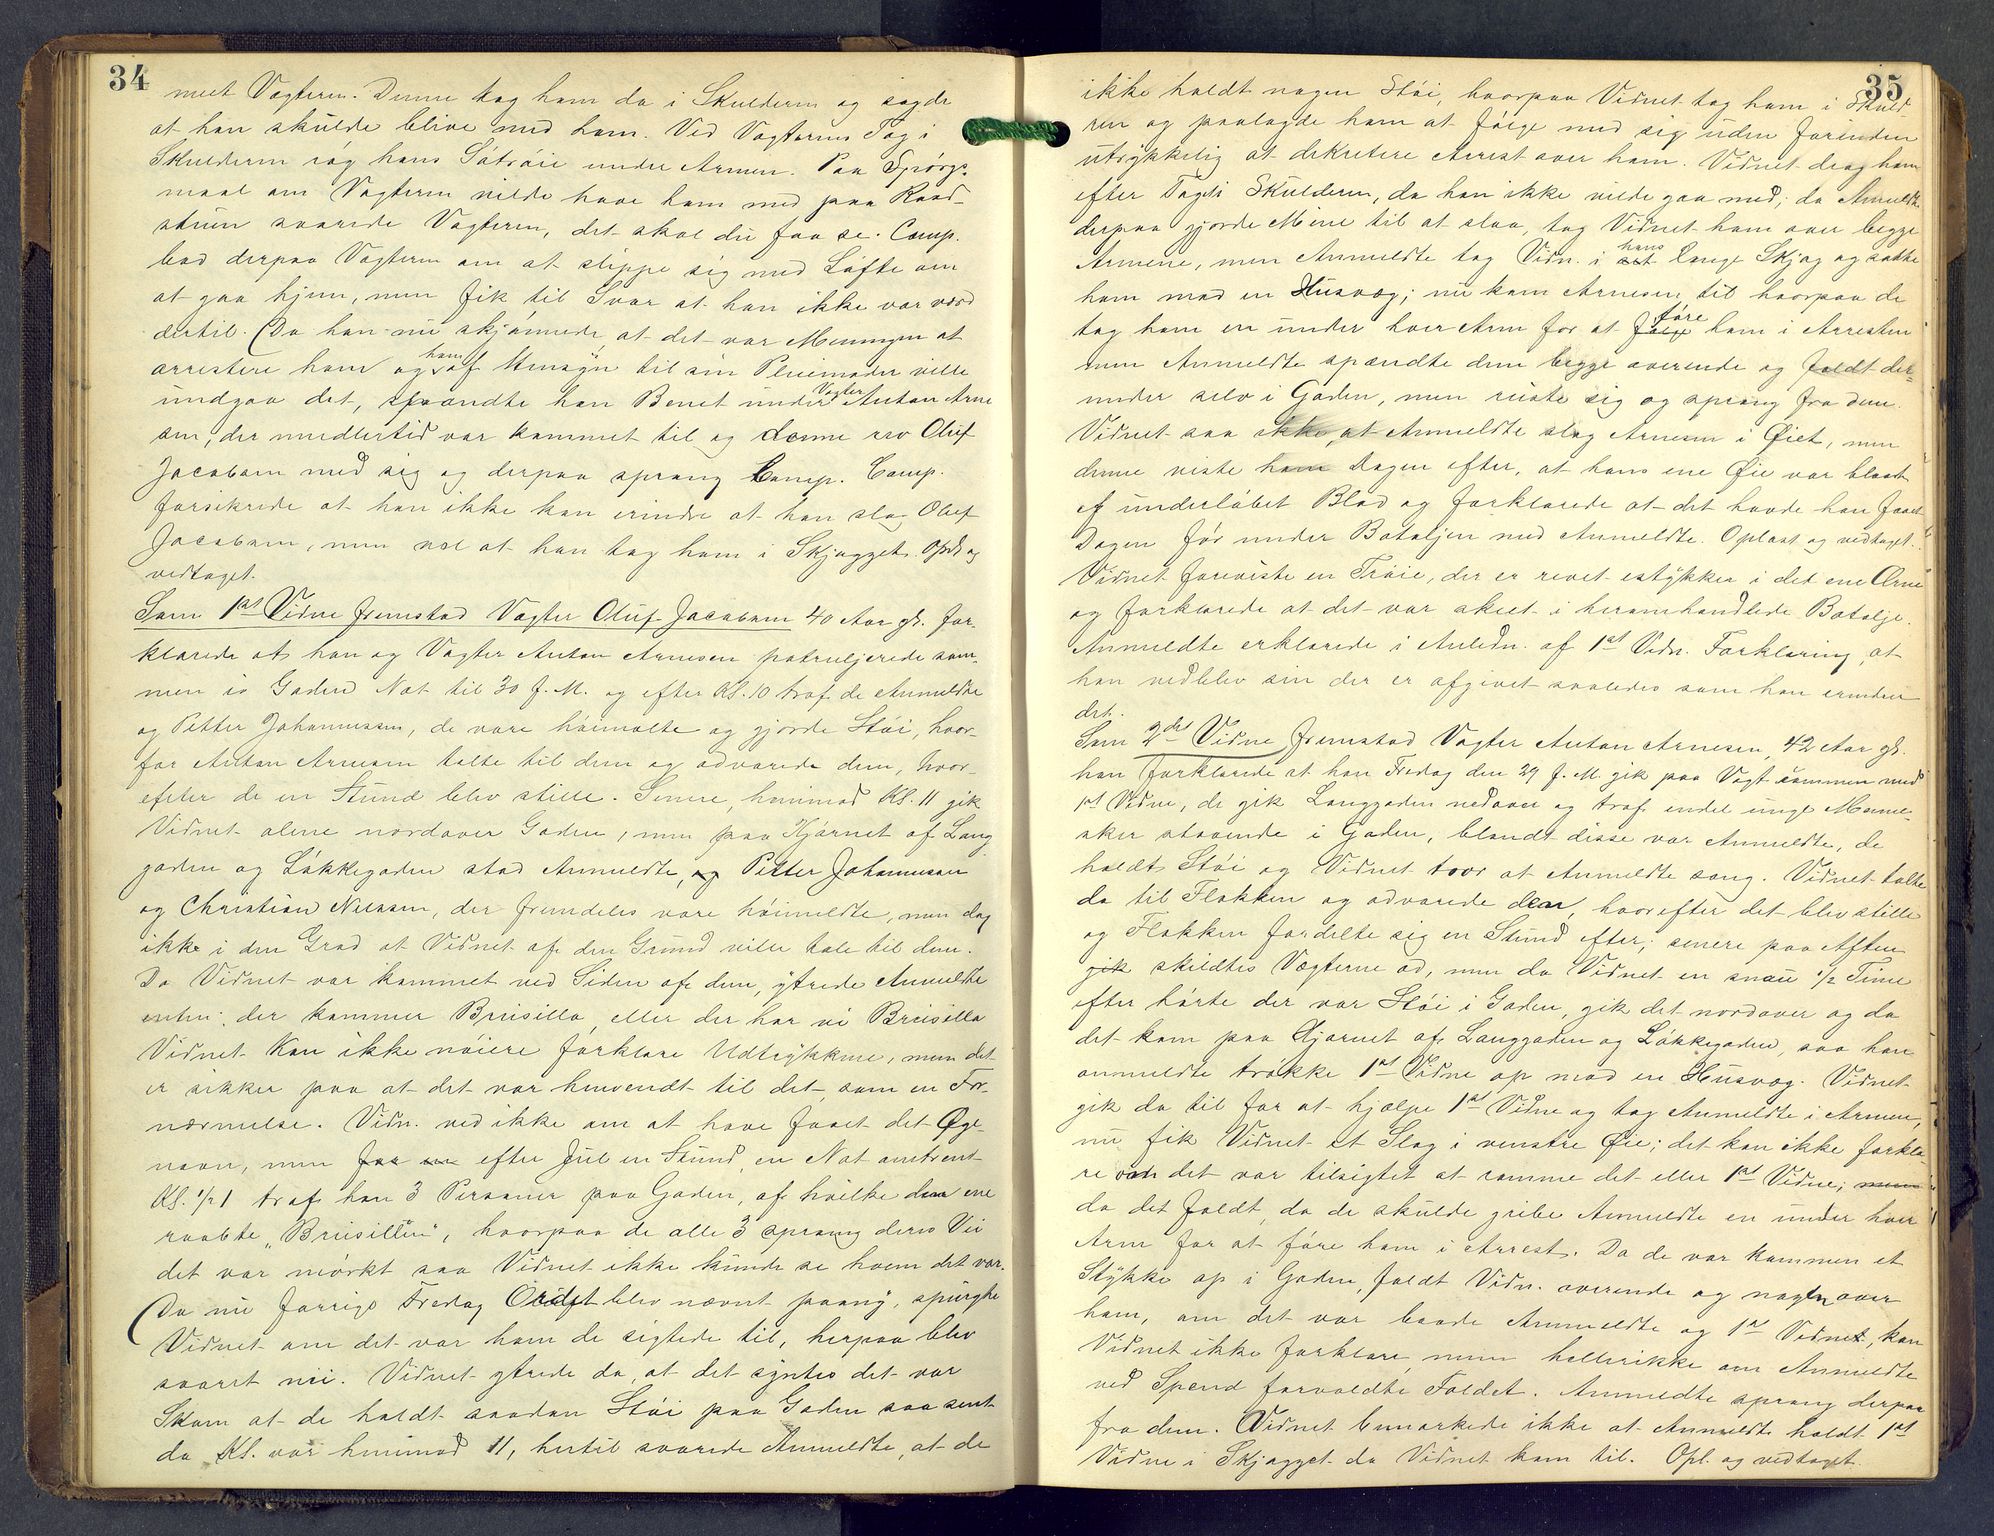 34
meet Vagteren. Denne tog ham da i Skulderen og sagde
at han skulde blive med ham. Ved Vagterens Tag i
Skulderen røg hans Gåtrøie under Armen. Paa Spørgs-
maal om Vagteren vilde have ham med paa Raad-
stuen svarede Vagteren, det skal du faa se. Comp.
bad derpaa Vagteren om at slippe sig med Løfte om
at gaa hjem, men fik til Svar at han ikke var værd
dertil. (Da han nu skjønnede at det var Meningen at
arrestere ham og han af Hensyn til sin Pleiemoder vilde
undgaa det, spændte han Benet under Vagter Anton Arne
sen, der imedlertid var kommet til og denne rev Oluf
Jacobsen med sig og derpaa sprang Comp. Comp.
forsikrede at han ikke kan erindre at han slog Oluf
Jacobsen, men vel at han tog ham i Skjægget. Opl. og
vedtaget.
Som 1st Vidne fremstod Vagter Oluf Jacobsen 40 Aar gl. for-
klarede at han og Vagter Anton Arnesen patruljerede sam-
men i Gaden Nat til 30 f. M. og efter Kl. 10 traf de Anmeldte
og Petter Johannessen, de vare høimælte og gjorde Støi, hvor-
for Anton Arnesen talte til dem og advarede dem, hvor-
efter de en Stund blev stille. Senere, henimod Kl. 11 gik
Vidnet alene nordover Gaden, men paa Hjørnet af Lang
gaden og Løkkegaden stod Anmeldte, og Petter Johannessen
og Christian Nilssen, der fremdeles vare høimeldte, men dog
ikke i den Grad at Vidnet af den Grund ville tale til dem.
Da Vidnet var kommet ved Siden af dem, ytrede Anmeldte
enten: der kommer Brusilla, eller der har vi Brusilla
Vidnet kan ikke nøiere forklare Udtrykkene, men det
er sikker paa at det var henvendt til det, som en For-
nærmelse. Vidn. ved ikke om at have faaet det Øge-
navn, men for en efter Jul en Stund, en Nat omtrent
Kl. 1/2 1 traf han 3 Personer paa Gaden, af hvilke den ene
raabte „Brusillen", hvorpaa de alle 3 sprang deres Vei
det var mørkt saa Vidnet ikke kunde se hvem det var.
(Da nu forrige Fredag Ordet blev nævnt paany, spurgte
Vidnet om det var ham de sigtede til, herpaa blev
svaret nei. Vidnet ytrede da, at det syntes det var
Skam at de holdt saadan Støi paa Gaden saa sent
da Kl. var henimod 11, hertil svarede Anmeldte, at de
35
ikke holdt nogen Støi, hvorpaa Vidnet tog ham i Skuld-
ren og paalagde ham at følge med sig uden forinden
utrykkelig at dekretere Arrest over ham. Vidnet drog ham
efter Taget i Skulderen, da han ikke vilde gaa med; da Anmeldte
derpaa gjorde Mine til at slaa, tog Vidnet ham over begge
Armene, men Anmeldte tog Vidn. i sit hans lange Skjæg og satte
ham mod en Husvæg; nu kom Arnesen til hvorpaa de
tog ham en under hver Arm for at følge føre ham i Arresten
men Anmeldte spændte dem begge overende og faldt der-
under selv i Gaden, men reiste sig og sprang fra dem.
Vidnet saa ikke, at Anmeldte slog Arnesen i Øiet, men
denne viste ham Dagen efter, at hans ene Øie var blaat
af underløbet Blod og forklarede at det havde han faaet
Dagen før under Bataljen med Anmeldte. Oplæst og vedtaget.
Vidnet foreviste en Trøie, der er revet istykker i det ene Ærme
og forklarede at det var skeet i heromhandlede Batalje.
Anmeldte erklærede i Anledn. af 1st Vidn. Forklaring, at
han vedblev sin der er afgivet saaledes som han erindrer
det.
Som 2det Vidne fremstod Vagter Anton Arnesen, 42 Aar gl.
han forklarede at han Fredag den 29 f. M. gik paa Vagt sammen med
1st Vidne, de gik Langgaden nedover og traf endel unge Menne-
sker staaende i Gaden, blandt disse var Anmeldte, de
holdt Støi og Vidnet tror at Anmeldte sang. Vidnet talte
da til Flokken og advarede den, hvorefter det blev stille
og Flokken fordelte sig en Stund efter; senere paa Aften
gik skildtes Vægterne ad, men da Vidnet en snau 1/2 Time
efter hørte der var Støi i Gaden, gik det nordover og da
det kom paa Hjørnet af Langgaden og Løkkegaden, saa han
anmeldte trykke 1st Vidne op mod en Husvæg. Vidnet
gik da til for at hjælpe 1st Vidne og tog Anmeldte i Armen,
nu fik Vidnet et Slag i venstre Øie; det kan ikke forkla-
re om det var tilsigtet at ramme det eller 1st Vidne; men
da det faldt, da de skulde gribe Anmeldte en under hver
Arm for at føre ham i Arrest. Da de var kommen et
Stykke op i Gaden, faldt Vidn. overende og nogen over
ham, om det var baade Anmeldte og 1st Vidnet, kan
Vidnet ikke forklare, men heller ikke om Anmeldte
ved Spænd forvoldte Faldet. Anmeldte sprang derpaa
fra dem. Vidnet bemærkede ikke at Anmeldte holdt 1st
Vidne i Skjægget da Vidnet kom til. Opl. og vedtaget.